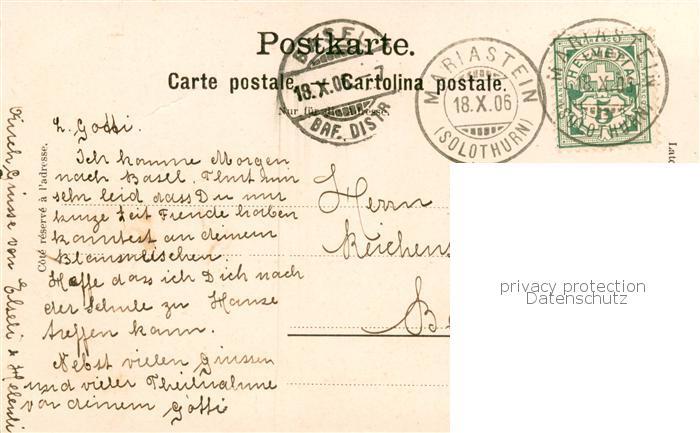 Postkarte.
Carte postale. — Cartolina postale.
Nur für die Adresse.
Côté réservé à l'adresse.
BASEL
18.X.06 - 7
BRF. DISTR.
MARIASTEIN
18.X.06
(SOLOTHURN)
MARIASTEIN
(SOLOTHURN)
HELVETIA
5
L. Gotti.
Ich komme Morgen
nach Basel. Thut mir
sehr leid dass Du nur
kurze Zeit Freude haben
konntest an deinem
Hoffe dass ich Dich nach
der Schule zu Hause
treffen kann.
Nebst vielen Grüssen
und vieler Theilnahme
von deinem Götti
Auch Grüsse von Elseli & Heleneli
Herrn
Reichens
B
privacy protection
Datenschutz